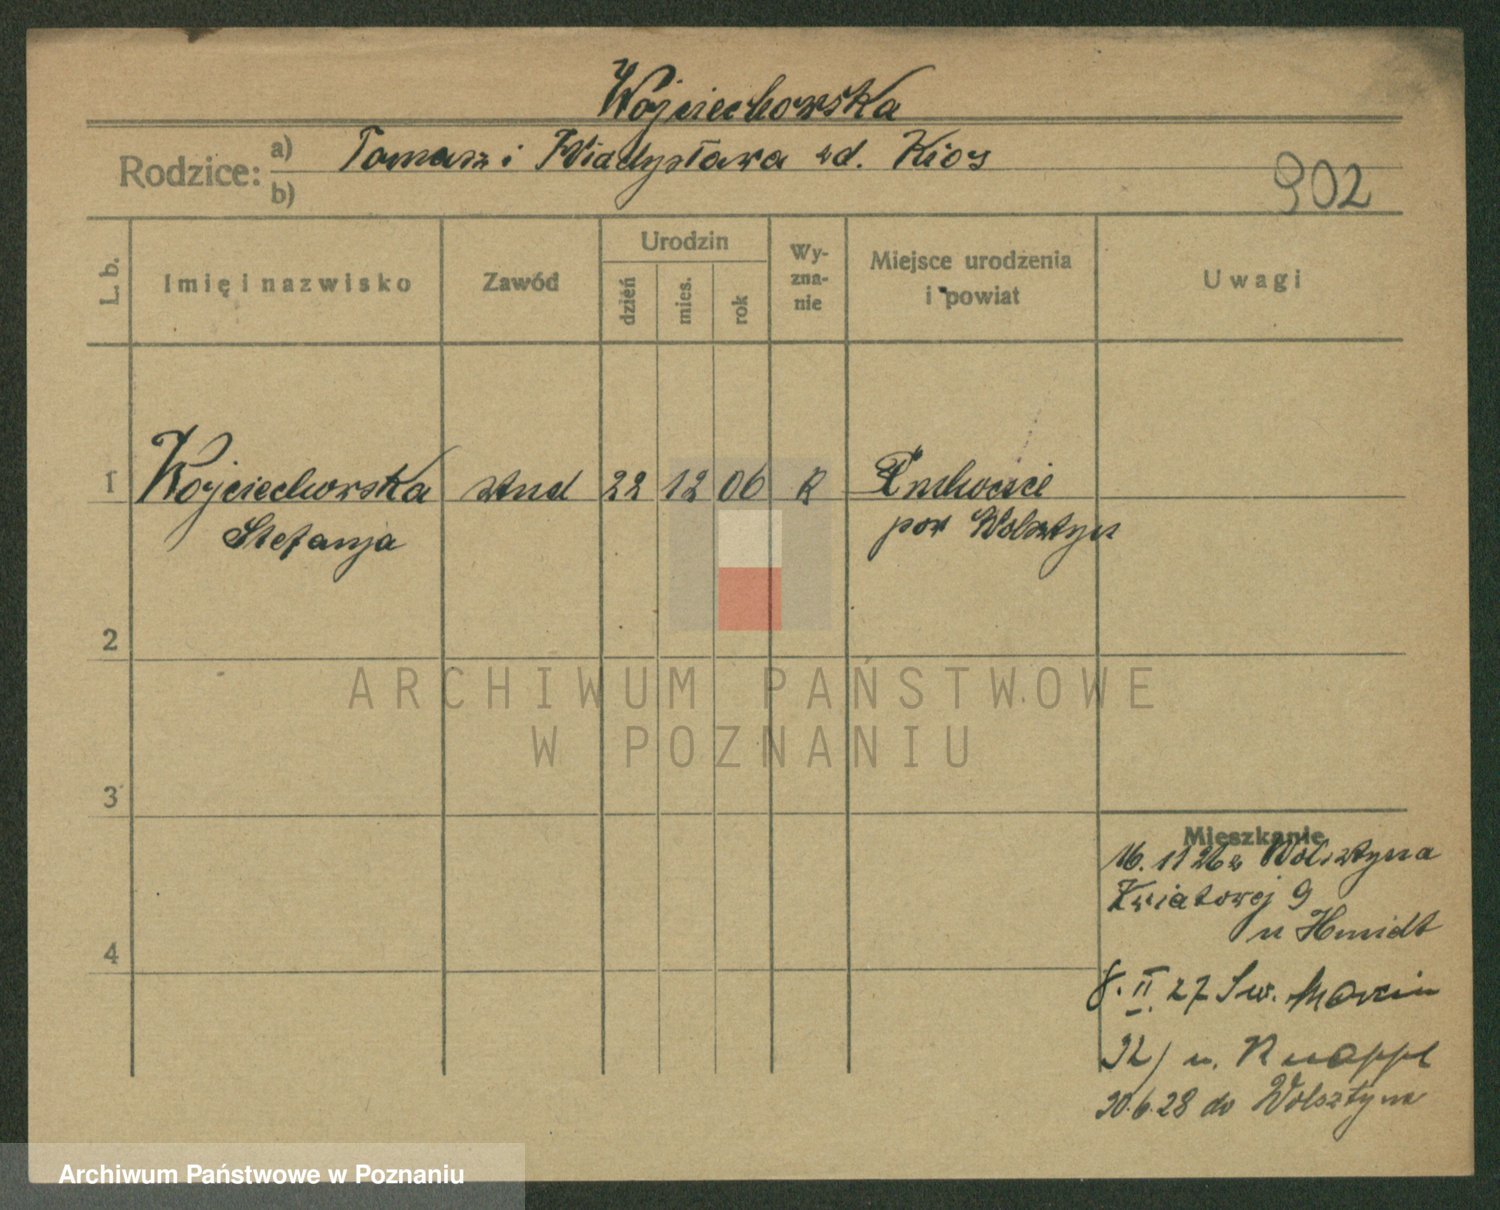 Wojciechowska
Rodzice: a) Tomasz i Władysława zd. Kios
b)
902
L. b.
Imię i nazwisko
Zawód
Urodzin
dzień
mies.
rok
Wy-
zna-
nie
Miejsce urodzenia
i powiat
Uwagi
1 Wojciechowska stud 22 12 06 R
Stefanja
pow Wolsztyn
2
3
4
Mieszkanie
16. 11 26 z Wolsztyna
Kwiatowej 9
u Hmidt
8. II. 27 Sw. Marcin
u. Knappe
30.6.28 do Wolsztyna
ARCHIWUM PAŃSTWOWE
W POZNANIU
Archiwum Państwowe w Poznaniu